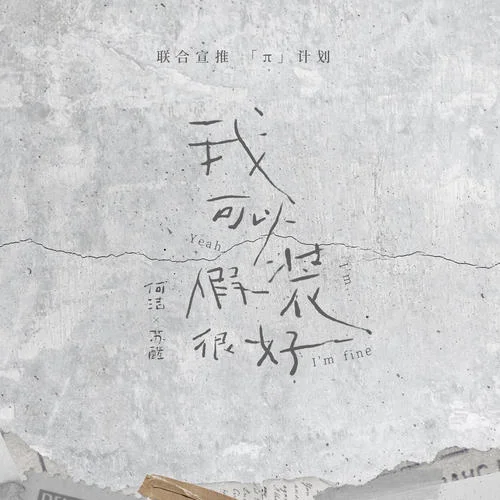 联合宣推 「π」计划
我
可以
Yeah
假装
I'm.
很好
I'm fine
何洁 × 苏醒